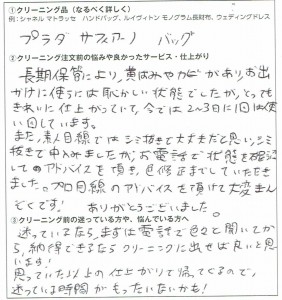 ①クリーニング品（なるべく詳しく）
例：シャネル マトラッセ　ハンドバッグ、ルイヴィトン モノグラム長財布、ウェディングドレス
プラダ　サフィアーノ　バッグ
②クリーニング注文前の悩みや良かったサービス・仕上がり
長期保管により、黄ばみやカビがあり、お出
かけに使うには恥ずかしい状態でしたが、とっても
きれいに仕上がっていて、今では2〜3日に1回は使
い回しています。
また、素人目線ではシミ抜きで大丈夫だと思い、シミ
抜きで申込みましたが、お電話で状態を確認
してのアドバイスを頂き、色修正までしていただき
ました。プロ目線のアドバイスを頂けて大変まん
ぞくです！　ありがとうございました。
③クリーニング前の迷っている方や、悩んでいる方へ
迷っているなら、まずは電話で色々と聞いてか
ら、納得できるならクリーニングに出せば良いと思
います！
思っていた以上の仕上がりで帰ってくるので、
迷っている時間がもったいないかも！